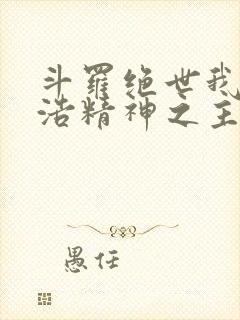 斗羅绝世我
浩精神之主
愚任